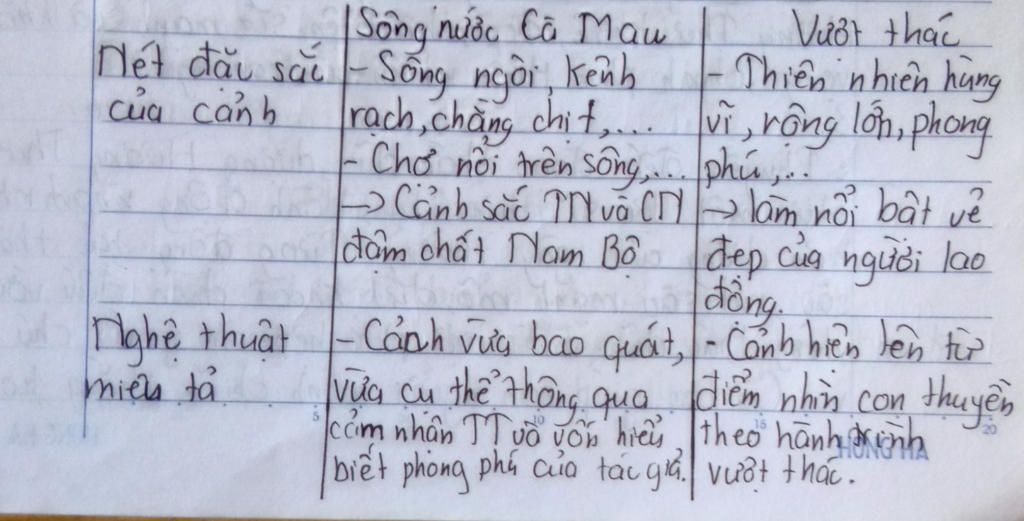 Sông nước Cà Mau
Vượt thác
Nét đặc sắc
của cảnh
Sông ngòi, kênh
rạch, chằng chịt,...
Chợ nổi trên sông,...
→ Cảnh sắc TN và CN
đậm chất Nam Bộ
Thiên nhiên hùng
vĩ, rộng lớn, phong
phú,...
→ làm nổi bật vẻ
đẹp của người lao
động.
Nghệ thuật
miêu tả
- Cảnh vừa bao quát,
vừa cụ thể thông qua
cảm nhận TT và vốn hiểu
biết phong phú của tác giả.
- Cảnh hiện lên từ
điểm nhìn con thuyền
theo hành trình
vượt thác.
5
10
15
20
HONG HA